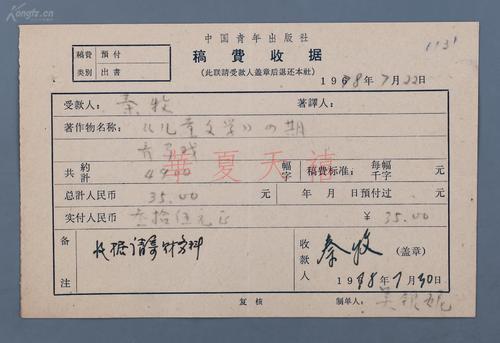 Kongfz.cn
中国青年出版社
稿费收据
(此联請受款人盖章后退还本社)
稿费 预付
类别 出書
1131
1978年7月22日
受款人: 秦牧 著譯人:
著作物名称: 《儿童文学》
共約計 4400 幅字 稿费标准: 每幅千字 元
总計人民币 35.00 元 年 月 日預付过 元
实付人民币 叁拾伍元正 ¥ 35.00
備注 收据请寄财务科
收款人 秦牧 (盖章)
1978年7月30日
复核 制单人:
華夏天禧